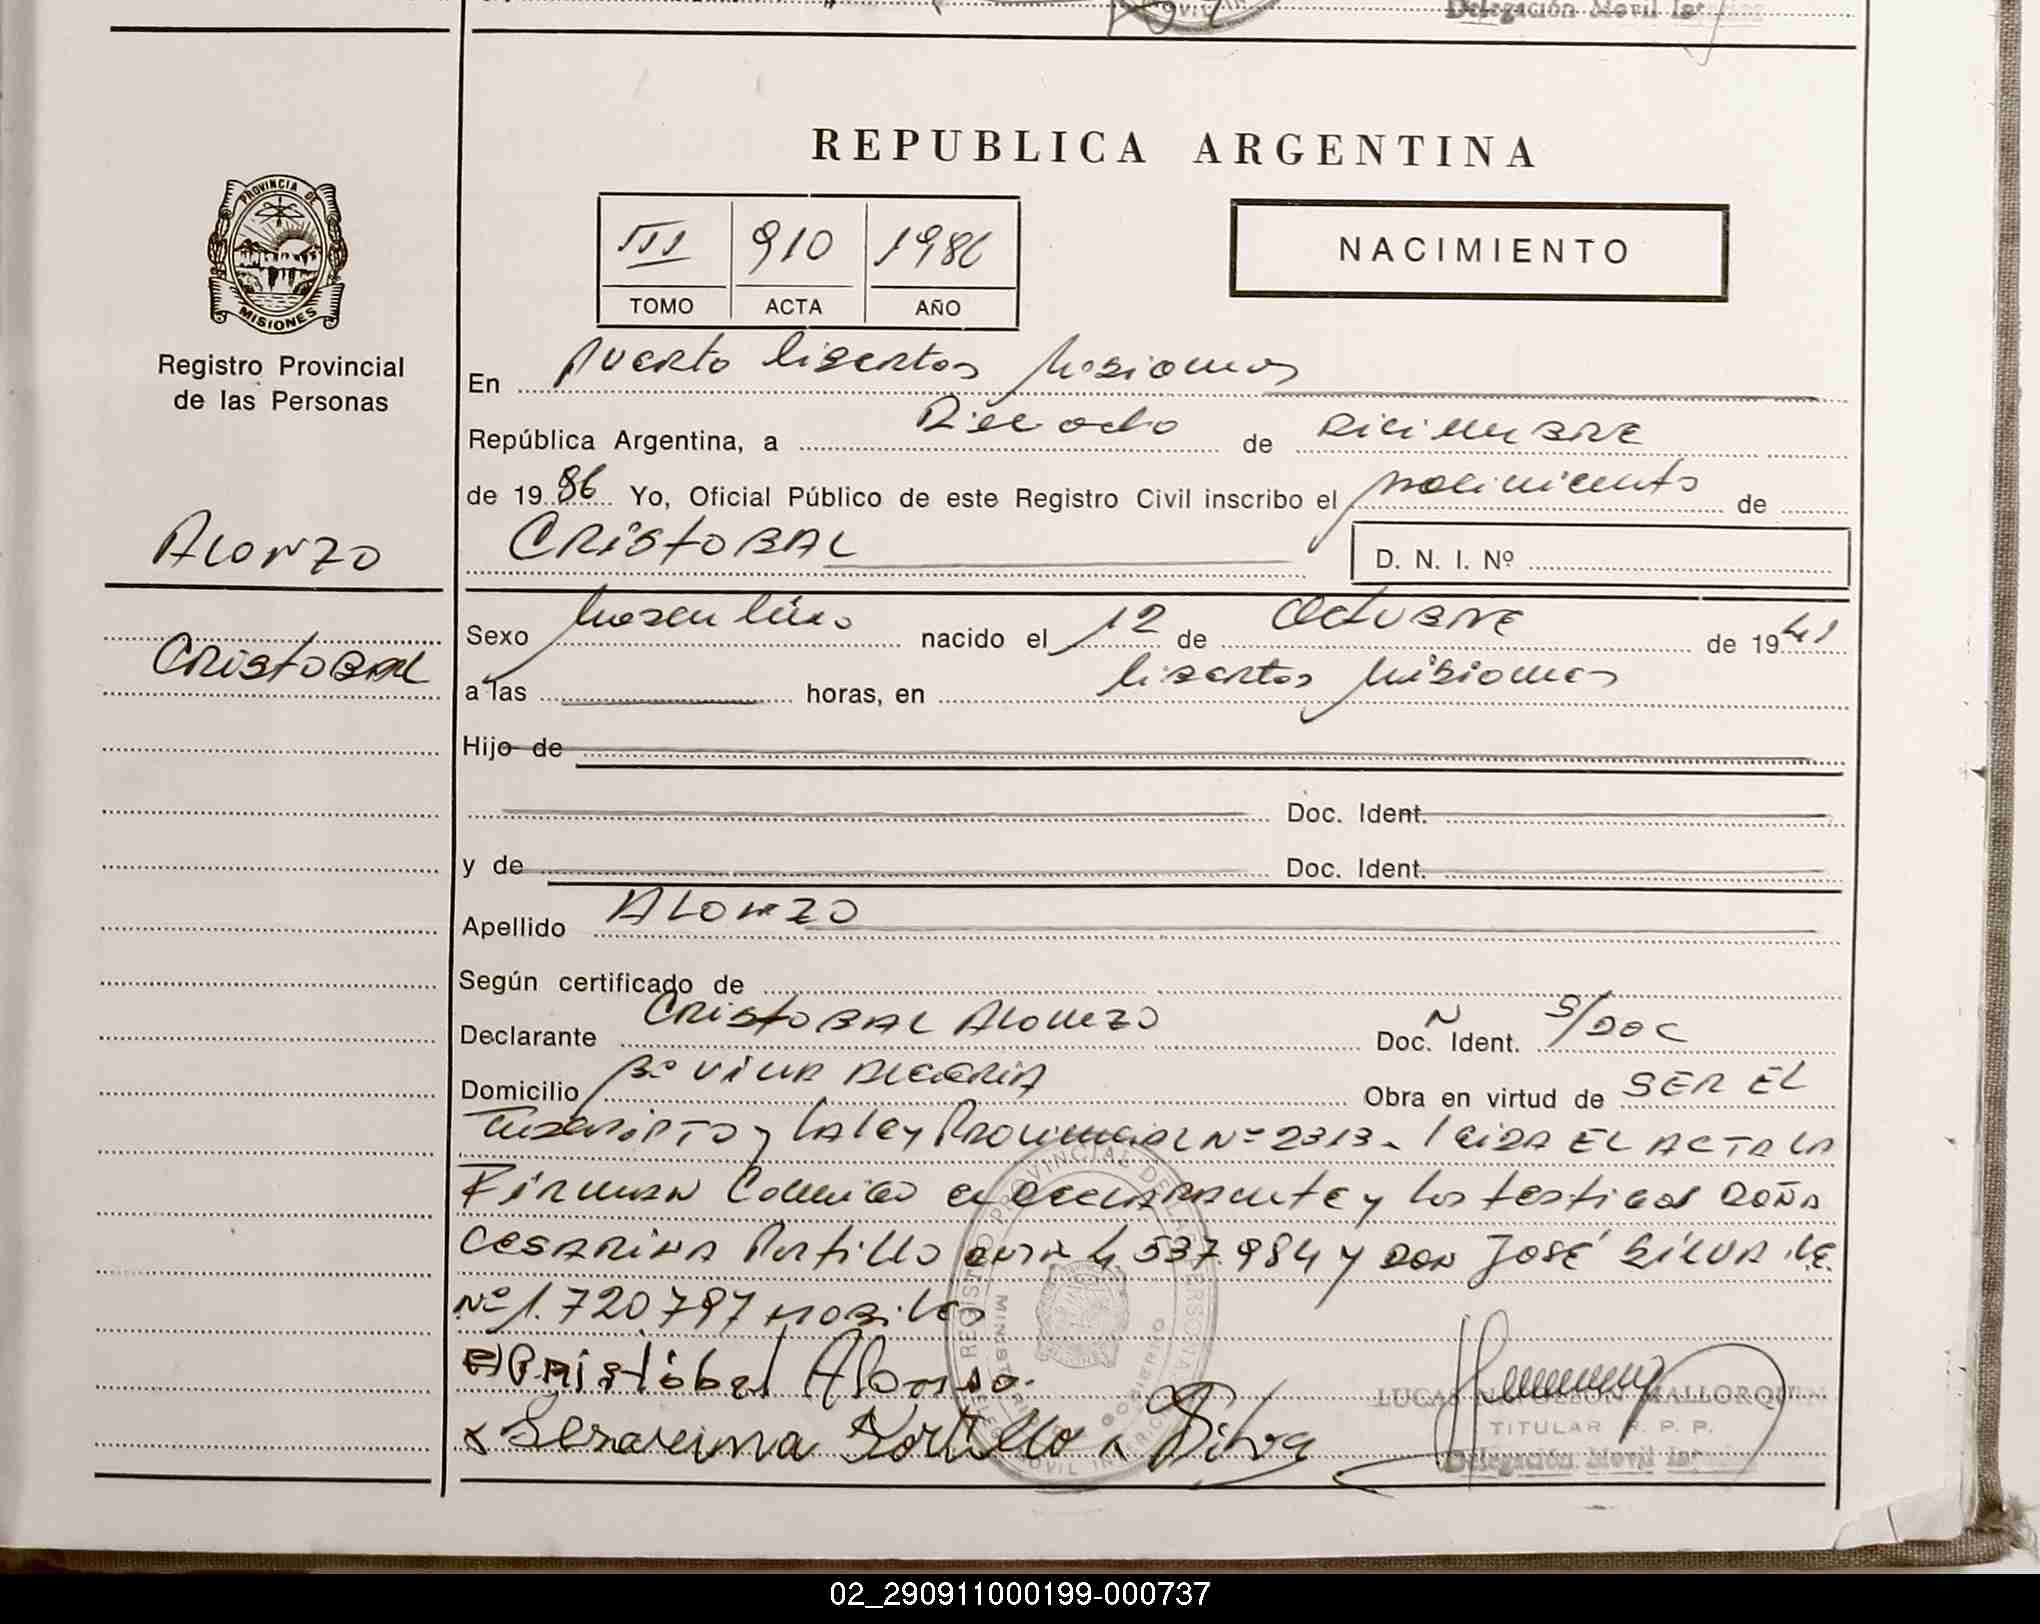 Delegación Movil
PROVINCIA DE
MISIONES
Registro Provincial
de las Personas
Alonzo
Cristobal
REPUBLICA ARGENTINA
III 910 1986
TOMO ACTA AÑO
NACIMIENTO
En Puerto Libertad Misiones
República Argentina, a Dieciocho de Diciembre
de 1986 Yo, Oficial Público de este Registro Civil inscribo el nacimiento de
CRISTOBAL D. N. I. Nº
Sexo Masculino nacido el 12 de Octubre de 1941
a las horas, en Libertad Misiones
Hijo de
Doc. Ident.
y de Doc. Ident.
Apellido ALONZO
Según certificado de
Declarante CRISTOBAL Alonzo Doc. Ident. S/DOC
Domicilio Bº Villa Alegria Obra en virtud de SER EL
Inscripto y la Ley Provincial Nº 2313- leida EL ACTA LA
Firman Conmigo el declarante y los testigos DOÑA
CESARINA Portillo 4.537.984 y DON JOSÉ SILVA L.E.
Nº 1.720.797
Cristóbal Alonso.
x Portillo Silva
LUCAS NAPOLEON MALLORQUIN
TITULAR R. P. P.
Delegación Movil
REGISTRO PROVINCIAL DE LAS PERSONAS
GOBIERNO
02_290911000199-000737